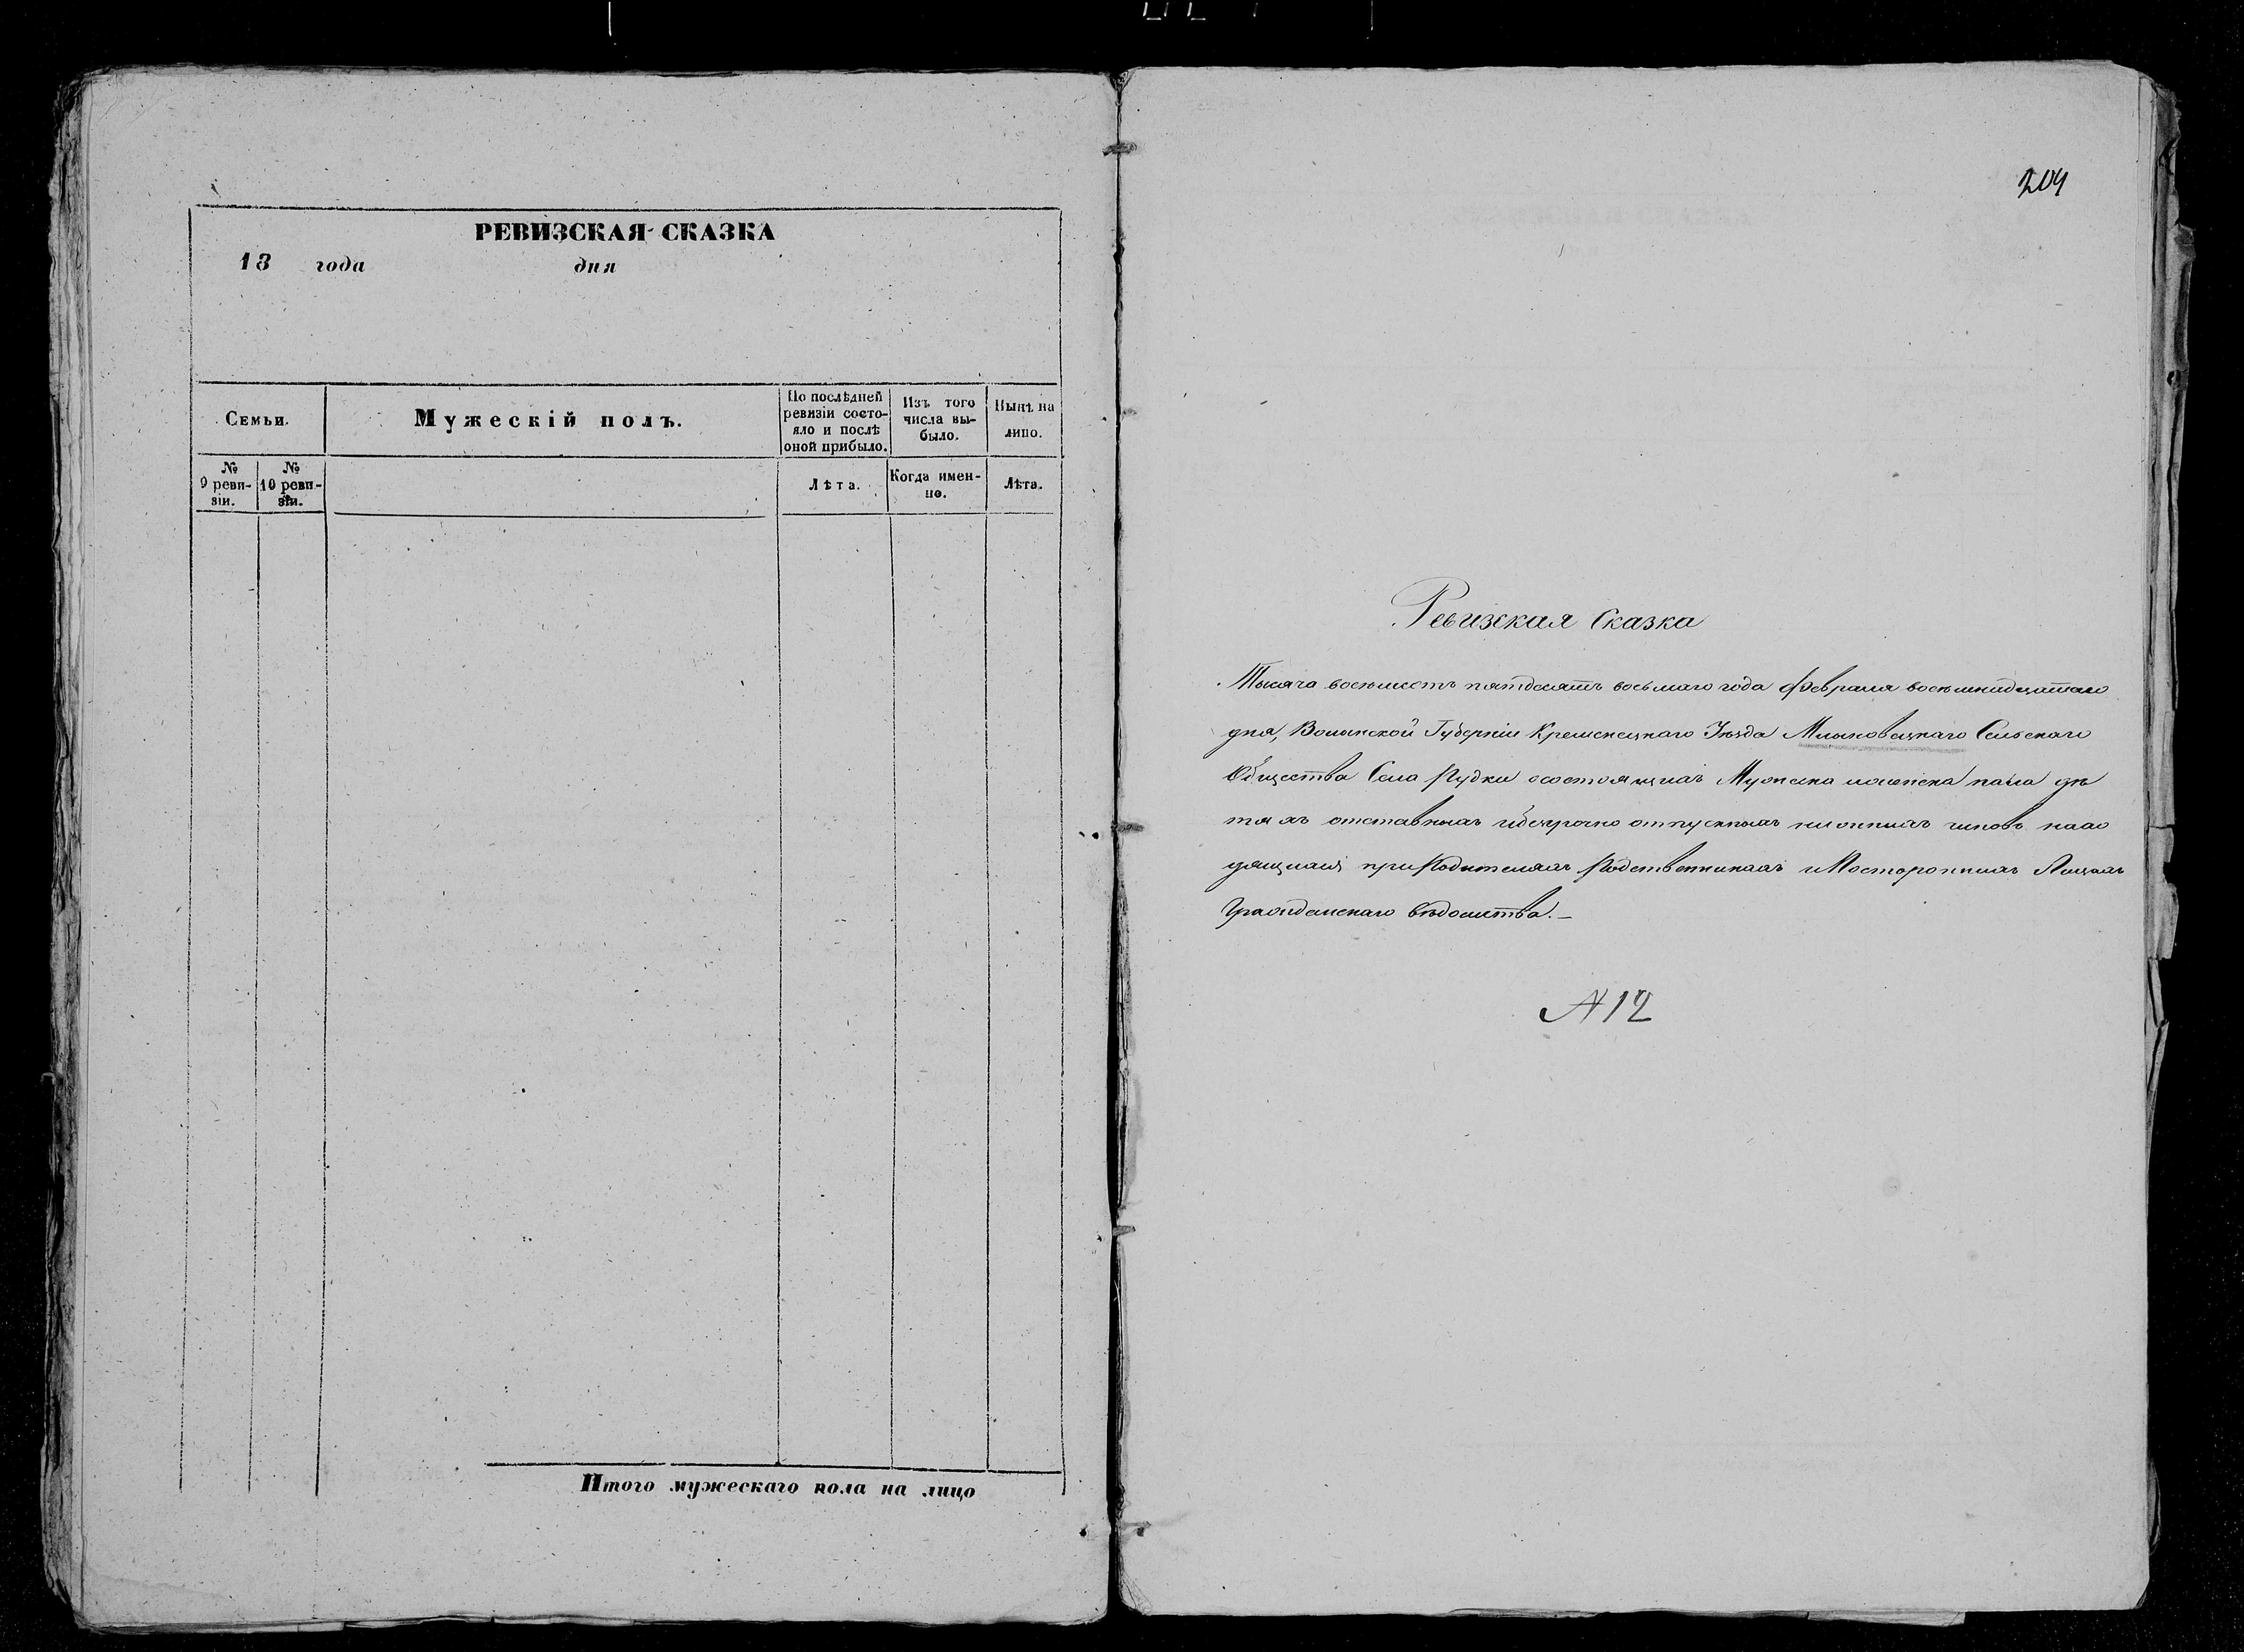 РЕВИЗСКАЯ СКАЗКА
18 года дня
Семьи.
Мужескій полъ.
По послѣдней ревизіи состо-
яло и послѣ
оной прибыло.
Изъ того
числа вы-
было.
Нынѣ на
лицо.
№
9 реви-
зіи.
№
10 реви-
зіи.
Лѣта.
Когда имен-
но.
Лѣта.
Итого мужескаго пола на лицо
204
Ревизская Сказка
Тысяча восемьсотъ пятдесятъ восьмаго года Февраля восемнадцатаго
дня, Волынской Губерніи Кременецкаго Уѣзда Млыновецкаго Сельскаго
Общества Села Рудки о состоящихъ Мужска и женска пола дѣ
тяхъ отставныхъ и безсрочно отпускныхъ нижнихъ чиновъ нахо
дящихся при Родителяхъ Родственникахъ и Постороннихъ Лицахъ
Гражданскаго вѣдомства.
№ 12